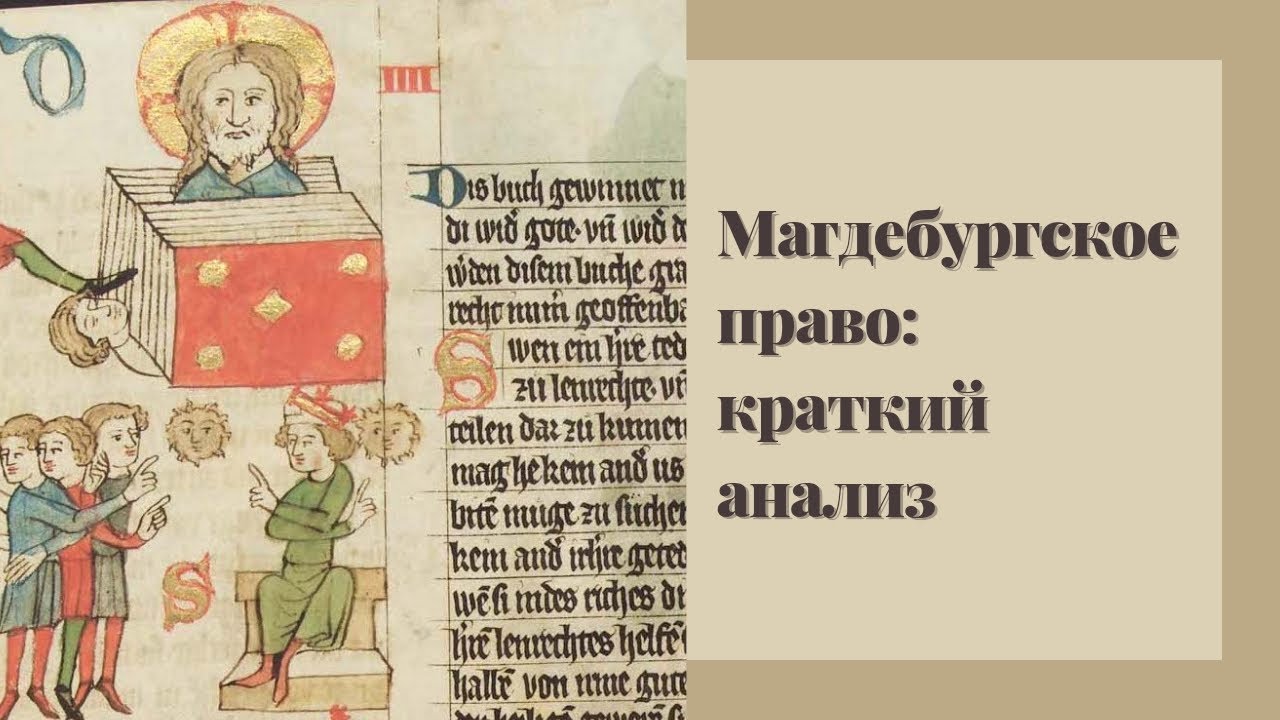 IIII
Dis buch gewinnet
di wid gote. vn wid
disem buche
recht num geoffenba
Swen ein hre
zu lenrechte. vn
teilen dar zu kumen
mag he kein and us
bite muge zu suchen
kein and
wesi indes riches di
hre lenrechtes helfe
halle von
S
Магдебургское
право:
краткий
анализ